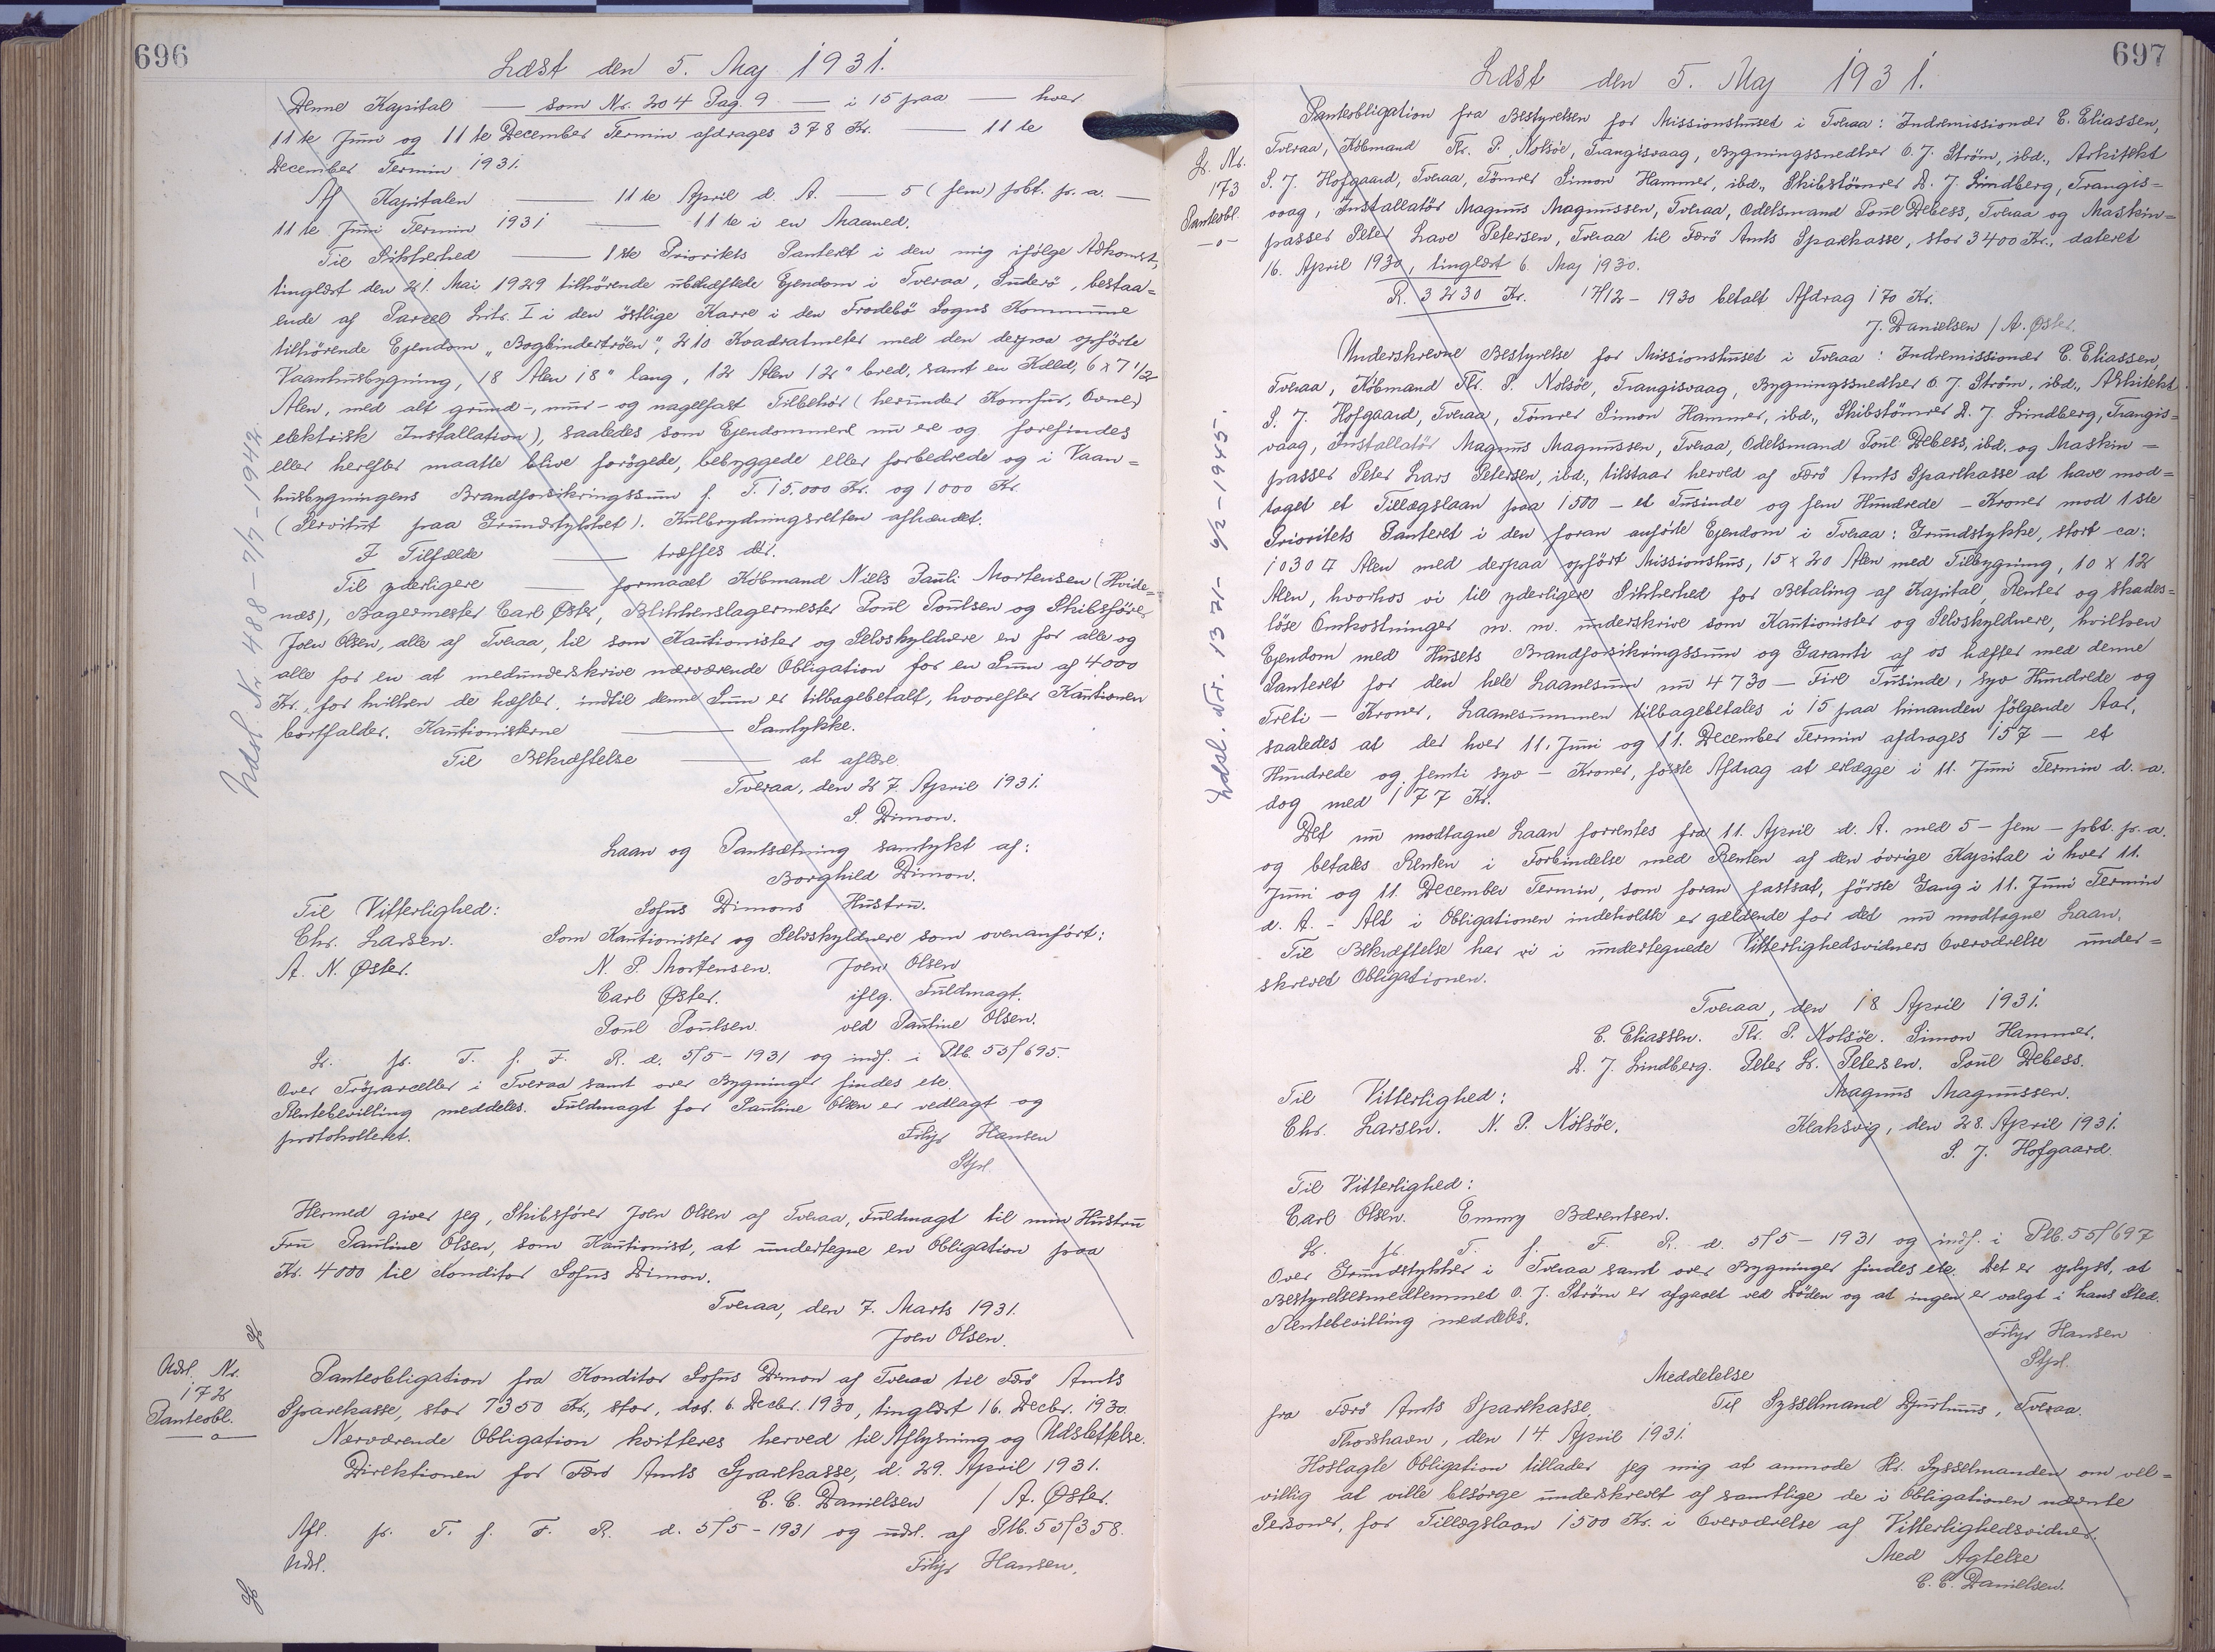 696
Læst den 5. Maj 1931.
Denne Kapital — som Nr. 204 Pag. 9 — i 15 paa — hver
11te Juni og 11te December Termin afdrages 378 Kr. — 11te
December Termin 1931.
Af Kapitalen — 11te April d. A. — 5 (fem) pCt. p. a. —
11te Juni Termin 1931 — 11te i en Maaned.
Til Sikkerhed — 1ste Prioritets Panteret i den mig ifølge Adkomst,
tinglæst den 21. Mai 1929 tilhørende ubehæftede Ejendom i Tveraa, Suderö, bestaa=
ende af Parcel Litr. I i den östlige Karre i den Frodebö Sogns Kommune
tilhörende Ejendom „Bogbindertröen", 210 Kvadratmeter med den derpaa opförte
Vaanhusbygning, 18 Alen 18" lang, 12 Alen 12" bred, samt en Kæld, 6 x 7 1/2
Alen, med alt grund-, mur- og nagelfast Tilbehör (herunder Komfur, Ovne,
elektrisk Installation), saaledes som Ejendommene nu ere og forefindes
eller herefter maatte blive forögede, bebyggede eller forbedrede og i Vaan=
husbygningens Brandforsikringssum f. T. 15.000 Kr. og 1000 Kr.
(Servitut paa Grundstykket). Kulbrydningsretten afhændet.
I Tilfælde — træffes der.
Til yderligere — formaaet Köbmand Niels Pauli Mortensen (Hvide=
næs), Bagermester Carl Øster, Blikkenslagermester Poul Poulsen og Skibsförer
Joen Olsen, alle af Tveraa, til som Kautionister og Selvskyldnere en for alle og
alle for en at medunderskrive nærværende Obligation for en Sum af 4000
Kr., for hvilken de hæfter, indtil denne Sum er tilbagebetalt, hvorefter Kautionen
bortfalder. Kautionisterne — Samtykke.
Til Bekræftelse — at aflæse.
Tveraa, den 27. April 1931.
S. Dimon.
Laan og Pantsætning samtykt af:
Borghild Dimon.
Til Vitterlighed: Sofus Dimons Hustru.
Chr. Larsen. Som Kautionister og Selvskyldnere som ovenanført:
A. N. Øster. N. P. Mortensen. Joen Olsen
Carl Øster. iflg. Fuldmagt.
Poul Poulsen. ved Pauline Olsen.
L. p. T. f. F. R. d. 5/5 - 1931 og indf. i Ptb. 55/695.
Over Tröparceller i Tveraa samt over Bygninger findes etc.
Rentebevilling meddeles. Fuldmagt for Pauline Olsen er vedlagt og
protokolleret. Filip Hansen
Stpl.
Hermed giver jeg, Skibsfører Joen Olsen af Tveraa, Fuldmagt til min Hustru
Fru Pauline Olsen, som Kautionist, at undertegne en Obligation paa
Kr. 4000 til Konditor Sofus Dimon.
Tveraa, den 7. Marts 1931.
Joen Olsen.
Udsl. Nr. 488 - 7/7 - 1942.
Udsl. Nr.
172
Panteobl.
Panteobligation fra Konditor Sofus Dimon af Tveraa til Færö Amts
Sparekasse, stor 7350 Kr., stor, dat. 6. Decbr. 1930, tinglæst 16. Decbr. 1930.
Nærværende Obligation kvitteres herved til Aflysning og Udslettelse.
Direktionen for Færö Amts Sparekasse, d. 29. April 1931.
C. C. Danielsen / A. Øster.
Afl. p. T. f. F. R. d. 5/5 - 1931 og udsl. af Ptb. 55/358.
Udsl. Filip Hansen.
697
Læst den 5. Maj 1931.
L. Nr.
173
Panteobl.
Panteobligation fra Bestyrelsen for Missionshuset i Tveraa: Indremissionær C. Eliassen,
Tveraa, Köbmand Thr. P. Nolsöe, Trangisvaag, Bygningssnedker O. J. Ström, ibd., Arkitekt
S. J. Hofgaard, Tveraa, Tömrer Simon Hammer, ibd., Skibstömrer D. J. Lindberg, Trangis=
vaag, Installatör Magnus Magnussen, Tveraa, Odelsmand Poul Debess, Tveraa og Maskin=
passer Peter Lave Petersen, Tveraa til Færö Amts Sparekasse, stor 3400 Kr., dateret
16. April 1930, tinglæst 6. Maj 1930.
R. 3230 Kr. 17/12 - 1930 betalt Afdrag 170 Kr.
J. Danielsen / A. Øster.
Underskrevne Bestyrelse for Missionshuset i Tveraa: Indremissionær C. Eliassen,
Tveraa, Köbmand Thr. P. Nolsöe, Trangisvaag, Bygningssnedker O. J. Ström, ibd., Arkitekt
S. J. Hofgaard, Tveraa, Tömrer Simon Hammer, ibd., Skibstömrer D. J. Lindberg, Trangis=
vaag, Installatör Magnus Magnussen, Tveraa, Odelsmand Poul Debess, ibd. og Maskin=
passer Peter Lars Petersen, ibd., tilstaar herved af Færö Amts Sparekasse at have mod=
taget et Tillægslaan paa 1500 - et Tusinde og fem Hundrede - Kroner mod 1ste
Prioritets Panteret i den foran anförte Ejendom i Tveraa: Grundstykke, stort ca:
1030 □ Alen med derpaa opfört Missionshus, 15 x 20 Alen med Tilbygning, 10 x 12
Alen, hvorhos vi til yderligere Sikkerhed for Betaling af Kapital Renter og skades=
löse Omkostninger m. m. underskrive som Kautionister og Selvskyldnere, hvilken
Ejendom med Husets Brandforsikringssum og Garanti af os hæfter med denne
Panteret for den hele Laanesum nu 4730 - Fire Tusinde, syv Hundrede og
Treti - Kroner. Laanesummen tilbagebetales i 15 paa hinanden fölgende Aar,
saaledes at der hver 11. Juni og 11. December Termin afdrages 157 - et
Hundrede og femti syv - Kroner, förste Afdrag at erlægge i 11. Juni Termin d. a.
dog med 177 Kr.
Det nu modtagne Laan forrentes fra 11. April d. A. med 5 - fem - pCt. p. a.
og betales Renten i Forbindelse med Renten af den övrige Kapital i hver 11.
Juni og 11. December Termin, som foran fastsat, förste Gang i 11. Juni Termin
d. A. - Alt i Obligationen indeholdt er gældende for det nu modtagne Laan.
Til Bekræftelse har vi i undertegnede Vitterlighedsvidners Overværelse under=
skrevet Obligationen.
Tveraa, den 18 April 1931.
C. Eliassen. Thr. P. Nolsöe. Simon Hammer.
D. J. Lindberg. Peter L. Petersen. Poul Debess.
Til Vitterlighed: Magnus Magnussen.
Chr. Larsen. N. P. Nölsöe. Klaksvig, den 28. April 1931.
S. J. Hofgaard.
Til Vitterlighed:
Carl Olsen. Emmy Bærentsen.
L. p. T. f. F. R. d. 5/5 - 1931 og indf. i Ptb. 55/697
Over Grundstykker i Tveraa samt over Bygninger findes etc. Det er oplyst, at
Bestyrelsesmedlemmet O. J. Ström er afgaaet ved Döden og at ingen er valgt i hans Sted.
Rentebevilling meddeles.
Filip Hansen
Stpl.
Udsl. Nr. 1321 - 4/2 - 1945.
Meddelelse
fra Færö Amts Sparekasse Til Sysselmand Djurhuus, Tveraa.
Thorshavn, den 14. April 1931.
Hoslagte Obligation tillader jeg mig at anmode Hr. Sysselmanden om vel=
villig at ville besörge underskrevet af samtlige de i Obligationen nævnte
Personer, for Tillægslaan 1500 Kr. i Overværelse af Vitterlighedsvidner.
Med Agtelse
C. C. Danielsen.